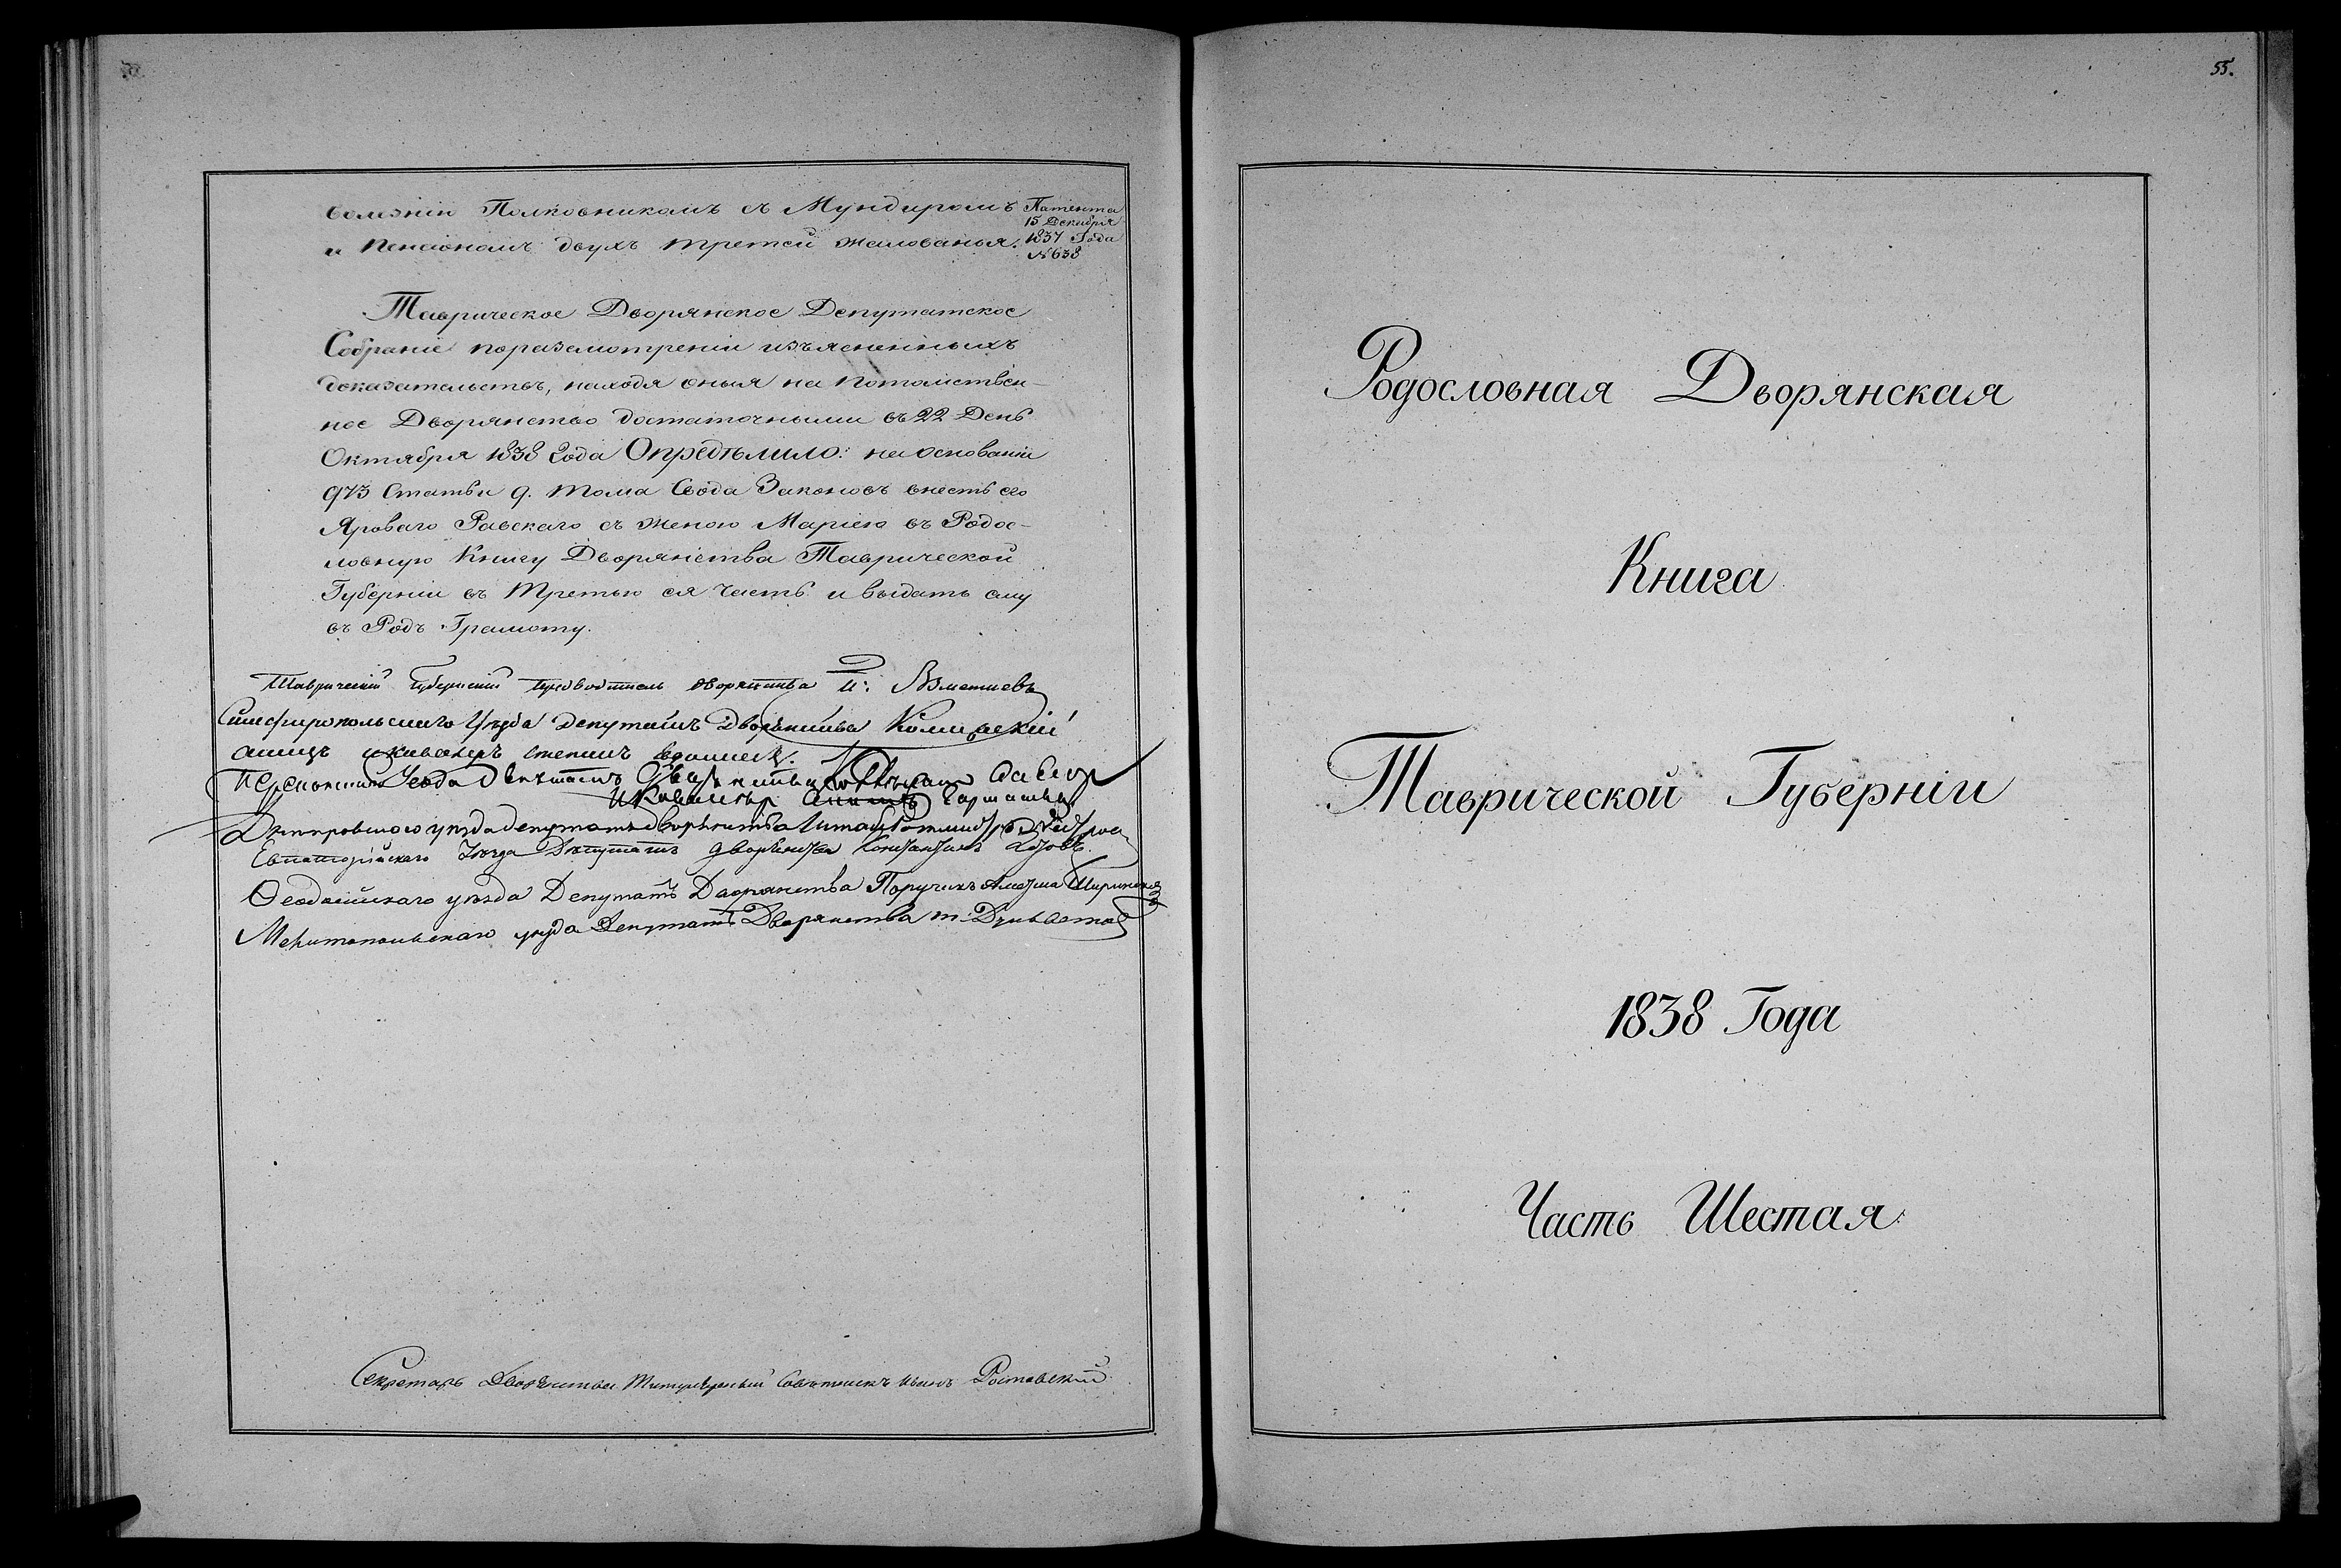 болѣзнію Полковникомъ съ Мундиромъ
и Пенсіономъ двухъ третей жалованья.
Патента
15 Декабря
1837 Года
№ 638
Таврическое Дворянское Депутатское
Собраніе поразсмотреніи изъясненныхъ
доказательствъ, находя оныя на потомствен-
ное Дворянство достаточными въ 22 День
Октября 1838 Года Опредѣлило: на основаніи
973 Статьи 9. тома Свода Законовъ внесть его
Яроваго Равскаго съ женою Маріею въ Родос-
ловную Книгу Дворянства Таврической
Губерніи въ Третью ея Часть и выдать ему
въ Родъ Грамоту.
Таврический Губернский предводитель дворянства
Симферопольскаго Уѣзда Депутатъ Дворянства
Уезда Депутатъ
и Кавалеръ
Днепровскаго уѣзда депутатъ дворянства Штабъ Ротмистръ
Евпаторійскаго Уѣзда Депутатъ дворянства Константинъ
Ѳеодосійскаго уѣзда Депутатъ Дворянства Поручикъ Ширинской
Мелитопольскаго уѣзда Депутатъ Дворянства
Секретарь Дворянства Титулярный Совѣтникъ Иванъ Ростовский
55.
Родословная Дворянская
Книга
Таврической Губерніи
1838 Года
Часть Шестая